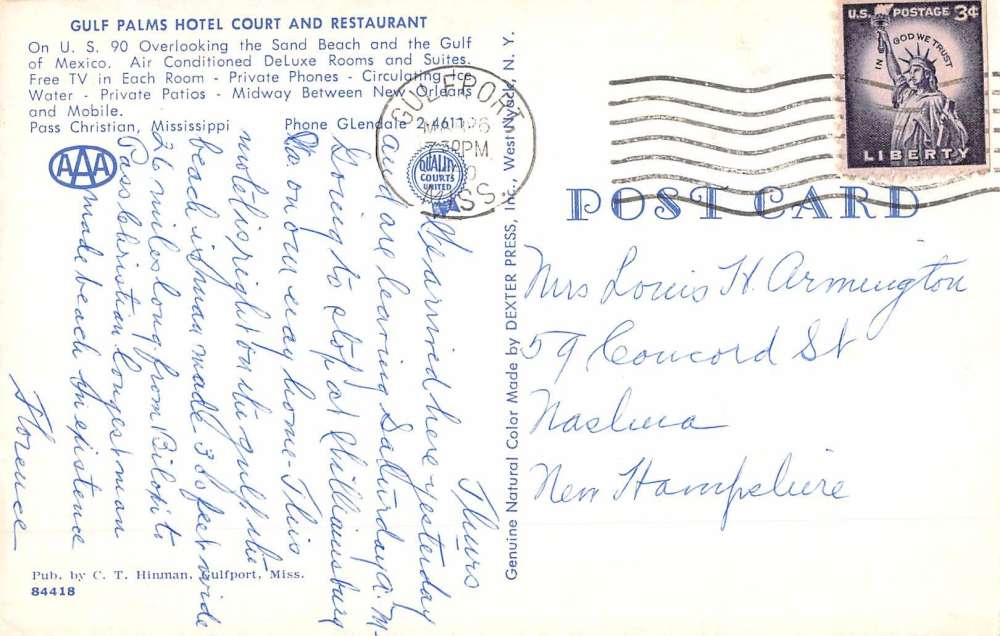 GULF PALMS HOTEL COURT AND RESTAURANT
On U. S. 90 Overlooking the Sand Beach and the Gulf
of Mexico. Air Conditioned DeLuxe Rooms and Suites.
Free TV in Each Room - Private Phones - Circulating Ice
Water - Private Patios - Midway Between New Orleans
and Mobile.
Pass Christian, Mississippi Phone GLendale 2-4611
AAA
QUALITY
COURTS
UNITED
Thurs
We arrived here yesterday
and are leaving Saturday A. M.
Going to stop at Williamsburg
Va on our way home - This
motel is right on the gulf, the
beach is man made 300 feet wide
26 miles long from Biloxi to
Pass Christian longest man
made beach in existence
Florence
Pub. by C. T. Hinman, Gulfport, Miss.
84418
Genuine Natural Color Made by DEXTER PRESS, Inc., West Nyack, N. Y.
GULFPORT
MAR
PM
MISS.
U.S. POSTAGE 3¢
IN GOD WE TRUST
LIBERTY
POST CARD
Mrs Louis H. Armington
59 Concord St
Nashua
New Hampshire